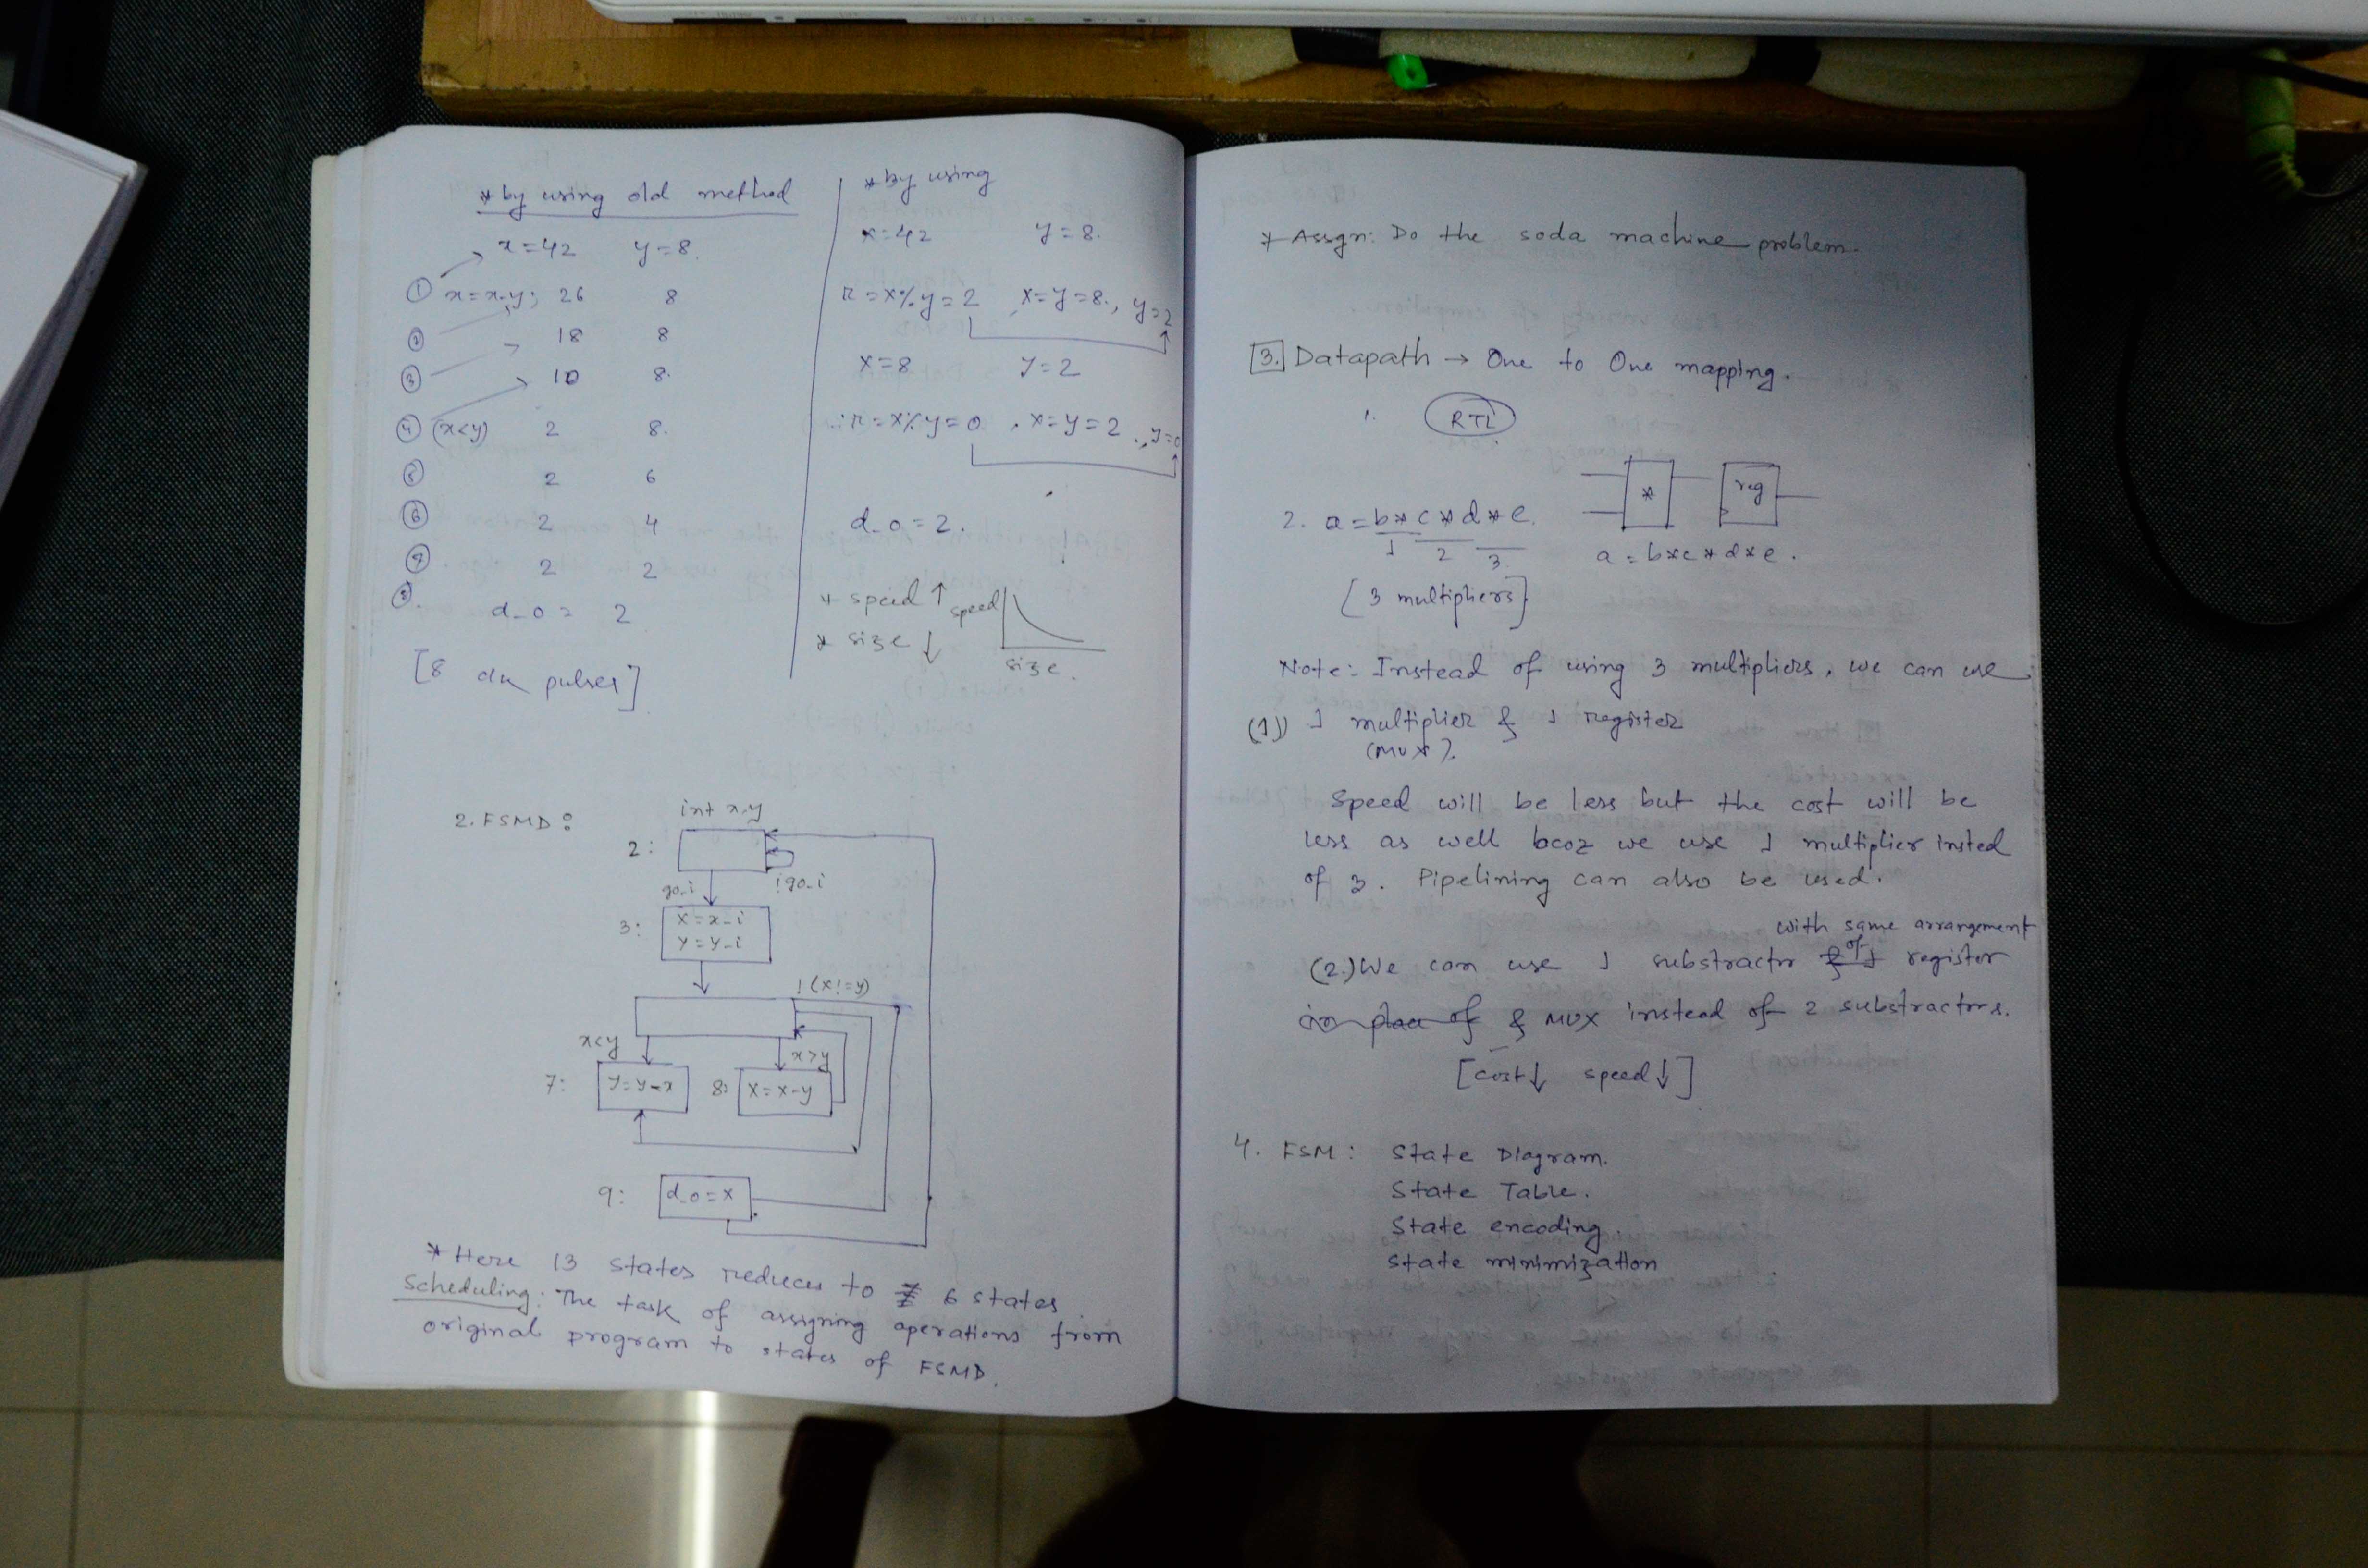 * by using old method
x=42 y=8.
① x=x-y; 26 8
② 18 8
③ 10 8.
④ (x<y) 2 8.
⑤ 2 6
⑥ 2 4
⑦ 2 2
⑧. d_o = 2
[8 clk pulses]
* by using
x=42 y=8.
r=x%y=2 , x=y=8., y=2
x=8 y=2
∴ r=x%y=0 , x=y=2 ., y=0
d_o=2.
* speed ↑
* size ↓
speed
size.
2. FSMD:
int x,y
2:
!go_i
go_i
3: x=x_i
y=y_i
!(x!=y)
x<y x>y
7: y=y-x 8: x=x-y
9: d_o=x
* Here 13 states reduces to 6 states.
Scheduling: The task of assigning operations from
original program to states of FSMD.
* Assgn: Do the soda machine problem.
3. Datapath → One to One mapping.
1. RTL
* reg
2. a=b*c*d*e.
1 2 3
a=b*c*d*e.
[3 multipliers]
Note: Instead of using 3 multipliers, we can use
(1)) 1 multiplier & 1 register
(MUX).
Speed will be less but the cost will be
less as well bcoz we use 1 multiplier insted
of 3. Pipelining can also be used.
with same arrangement
(2.) We can use 1 substractor of register
in place of & MUX instead of 2 substractors.
[cost↓ speed↓]
4. FSM: State Diagram.
State Table.
State encoding.
State minimization